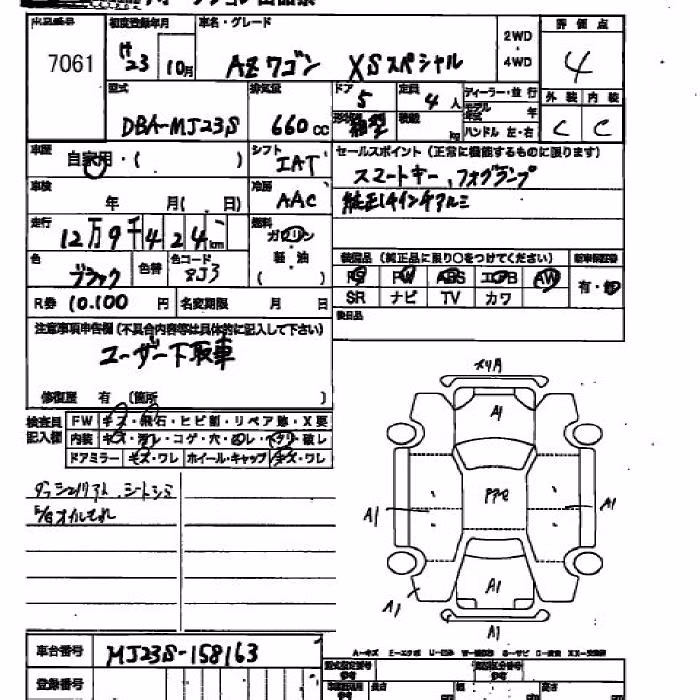 出品番号 初度登録年月 車名・グレード 2WD・4WD 評価点
7061 H23 10月 AZワゴン XSスペシャル 4
型式 排気量 ドア 定員 ディーラー・並行 外装 内装
DBA-MJ23S 660cc 5 4人 モデル年式 年 C C
形状 箱型 積載 kg ハンドル 左・右
車歴 自家用・( ) シフト IAT セールスポイント (正常に機能するものに限ります)
スマートキー、フォグランプ
車検 年 月( 日) 冷房 AAC 純正14インチアルミ
走行 12万9千424km 燃料 ガソリン
軽・油
( )
色 ブラック 色替 色コード ZJ3 装備品 (純正品に限り○をつけてください) 新車保証書
PS PW ABS エアB AW 有・無
R券 10.100円 名変期限 月 日 SR ナビ TV カワ
後日品
注意事項申告欄(不具合内容等は具体的に記入して下さい)
ユーザー下取車
修復歴 有 (箇所 )
検査員記入欄 FW キズ・飛石・ヒビ割・リペア跡・X要
内装 キズ・汚レ・コゲ・穴・切レ・ヘタリ・破レ
ドアミラー キズ・ワレ ホイール・キャップ キズ・ワレ
シートシミ
オイルモレ
メリ内
A1
A1 A1
A1
A1
A1
A-キズ E-エクボ U-凹み W-補修跡 S-サビ C-腐食 XX-交換済
車台番号 MJ23S-158163
登録番号
型式指定番号 類別区分番号
長さ 幅 高さ